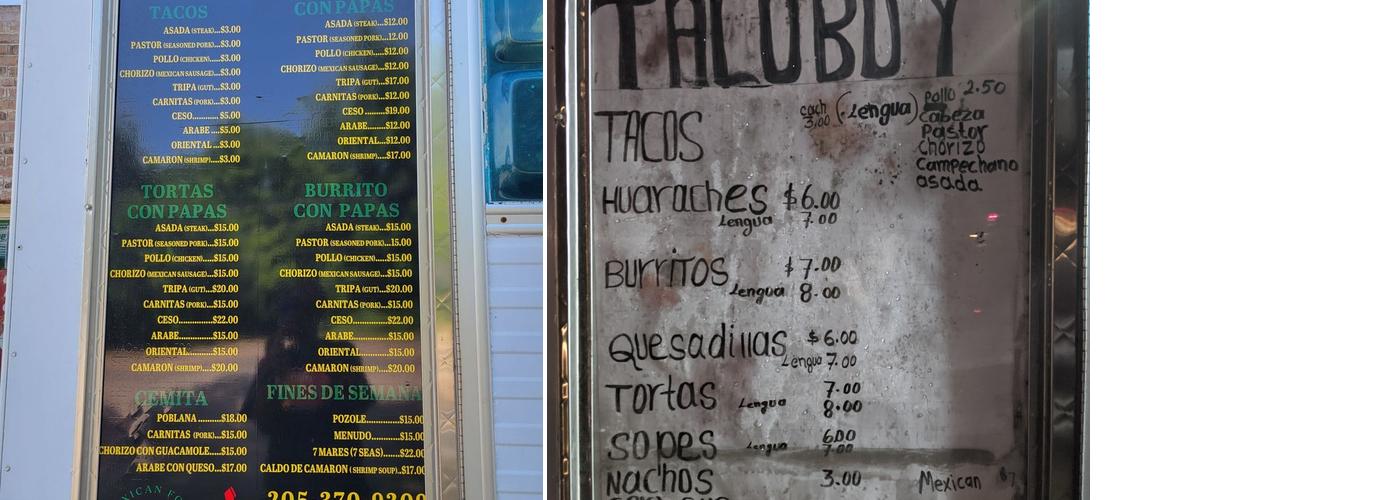 TACOS
ASADA (STEAK)...$3.00
PASTOR (SEASONED PORK)...$3.00
POLLO (CHICKEN).....$3.00
CHORIZO (MEXICAN SAUSAGE)...$3.00
TRIPA (GUT)...$3.00
CARNITAS (PORK)...$3.00
CESO.....$5.00
ARABE....$5.00
ORIENTAL ...$3.00
CAMARON (SHRIMP)...$3.00
CON PAPAS
ASADA (STEAK)...$12.00
PASTOR (SEASONED PORK)...12.00
POLLO (CHICKEN)....$12.00
CHORIZO (MEXICAN SAUSAGE)...$12.00
TRIPA (GUT)...$17.00
CARNITAS (PORK)...$12.00
CESO.........$19.00
ARABE.........$12.00
ORIENTAL...$12.00
CAMARON (SHRIMP)...$17.00
TORTAS
CON PAPAS
ASADA (STEAK)...$15.00
PASTOR (SEASONED PORK)...$15.00
POLLO (CHICKEN)....$15.00
CHORIZO (MEXICAN SAUSAGE)...$15.00
TRIPA (GUT)...$20.00
CARNITAS (PORK)...$15.00
CESO.............$22.00
ARABE...........$15.00
ORIENTAL.......$15.00
CAMARON (SHRIMP)...$20.00
BURRITO
CON PAPAS
ASADA (STEAK)...$15.00
PASTOR (SEASONED PORK)...15.00
POLLO (CHICKEN)....$15.00
CHORIZO (MEXICAN SAUSAGE)...$15.00
TRIPA (GUT)...$20.00
CARNITAS (PORK)...$15.00
CESO............$22.00
ARABE...........$15.00
ORIENTAL.....$15.00
CAMARON (SHRIMP)...$20.00
CEMITA
POBLANA ........$18.00
CARNITAS (PORK)...$15.00
CHORIZO CON GUACAMOLE....$15.00
ARABE CON QUESO...$17.00
FINES DE SEMANA
POZOLE.........$15.00
MENUDO........$15.00
7 MARES (7 SEAS).......$22.00
CALDO DE CAMARON (SHRIMP SOUP)..$17.00
TACOBOY
TACOS each 3.00 (Lengua) Pollo 2.50
Cabeza
Pastor
Chorizo
Campechano
asada
Huaraches $6.00
Lengua 7.00
Burritos $7.00
Lengua 8.00
Quesadillas $6.00
Lengua 7.00
Tortas 7.00
Lengua 8.00
Sopes 6.00
Lengua 7.00
Nachos 3.00 Mexican